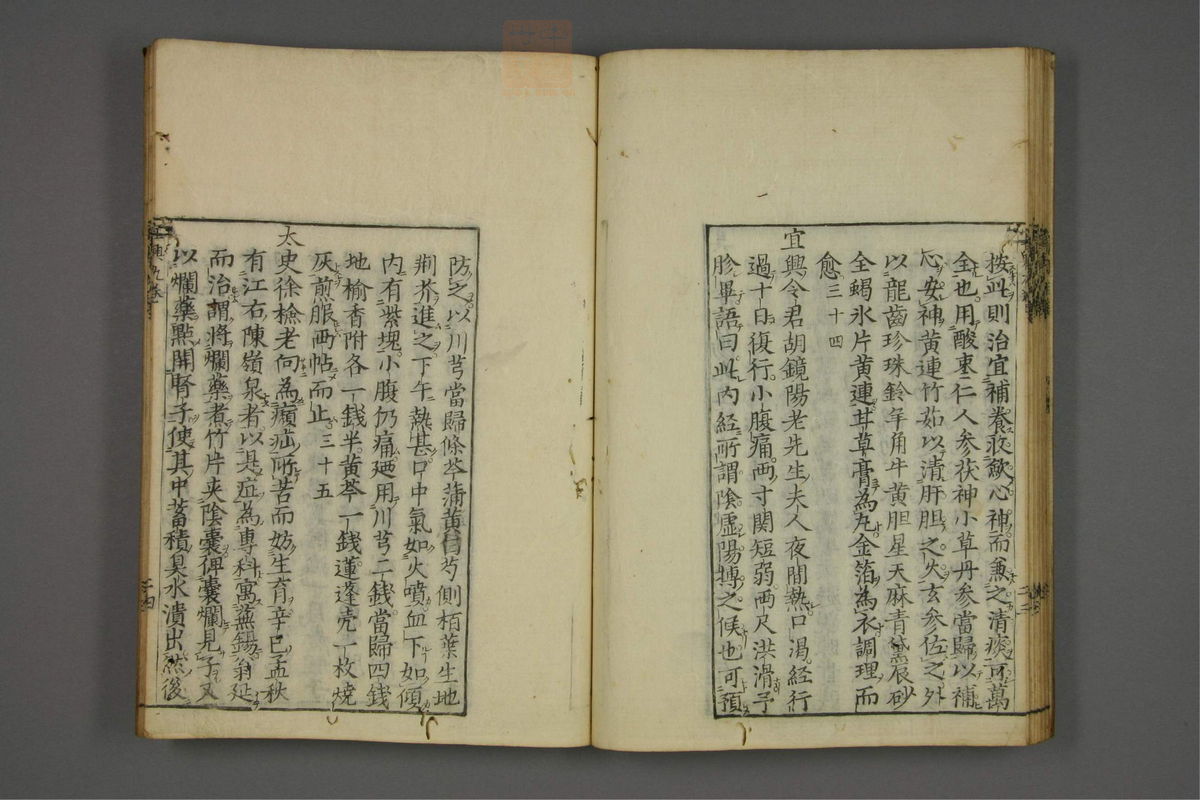 按此則治宜補養收歛心神而兼之清痰可萬
全也用酸棗仁人參茯神小草丹參當歸以補
心安神黄連竹茹以清肝胆之火玄參佐之外
以龍齒珍珠羚羊角牛黄胆星天麻青黛辰砂
全蝎氷片黄連甘草膏為丸金箔為衣調理而
愈三十四
宜興令君胡鏡陽老先生夫人夜間熱口渴經行
過十日復行小腹痛兩寸関短弱兩尺洪滑予
診畢語曰此内経所謂陰虛陽搏之候也可預
防之以川芎當歸條芩蒲黄白芍側栢葉生地
荆芥進之下午熱甚口中氣如火噴血下如傾
内有紫塊小腹仍痛廼用川芎二錢當歸四錢
地榆香附各一錢半黄芩一錢蓮蓬壳一枚燒
灰煎服兩帖而止三十五
太史徐檢老向為㿗疝所苦而妨生育辛巳孟秋
有江右陳嶺泉者以是症為專科寓蕪錫翁延
而治謂將爛藥煮竹片夾陰囊俾囊爛見子又
以爛藥點開腎子使其中蓄積臭水潰出然後